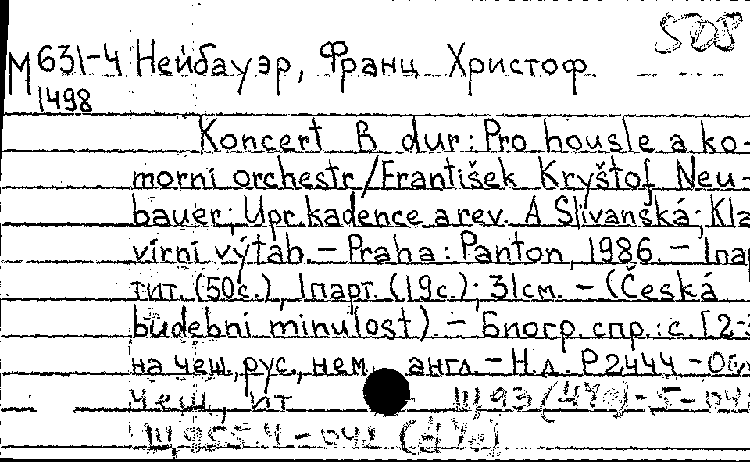 508
М631-4 Нейбауэр, Франц Христоф
1498
Koncert B dur: Pro housle a ko-
morni orchestr/František Kryštof Neu-
bauer; Upr. kadence a rev. A Slivanská; Kla
virni výtah. – Praha: Panton, 1986. – 1пар
тит. (50с.), 1парт. (19с.); 31см. – (Česká
budebni minulost). – Биогр. спр.: с. [2-3
на чеш., рус., нем. англ. – Н.д. P2444 – Обл
чеш., ит Щ93(4Че)-5-04
Щ955.4-04 (4Че)